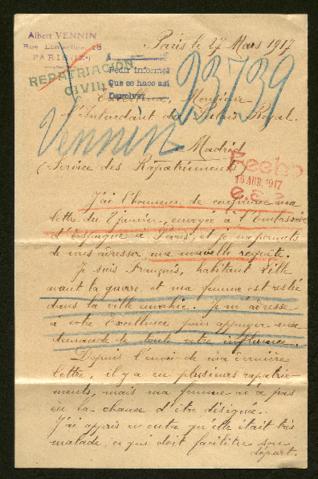 Albert VENNIN
Paris le 17 Mars 1917
PARIS
REPATRIACIÓN
CIVIL
Pedir informes
Que se hace así
23739
Monsieur
l'Intendant du Palais Royal
Vennin
Madrid
Service des Rapatriements
Fecho
J'ai l'honneur de confirmer ma
lettre du 2 janvier, envoyée à l'ambassade
d'Espagne à Paris, et je me permets
de vous adresser ma nouvelle requête.
Je suis Français, habitant Lille
avant la guerre, et ma femme est restée
dans la ville envahie. Je m'adresse
à votre Excellence pour appuyer ma
demande de toute votre influence.
Depuis l'envoi de ma dernière
lettre, il y a eu plusieurs rapatrie-
ments, mais ma femme n'a pas
eu la chance d'être désignée.
J'ai appris en outre qu'elle était très
malade, ce qui doit faciliter son
départ.